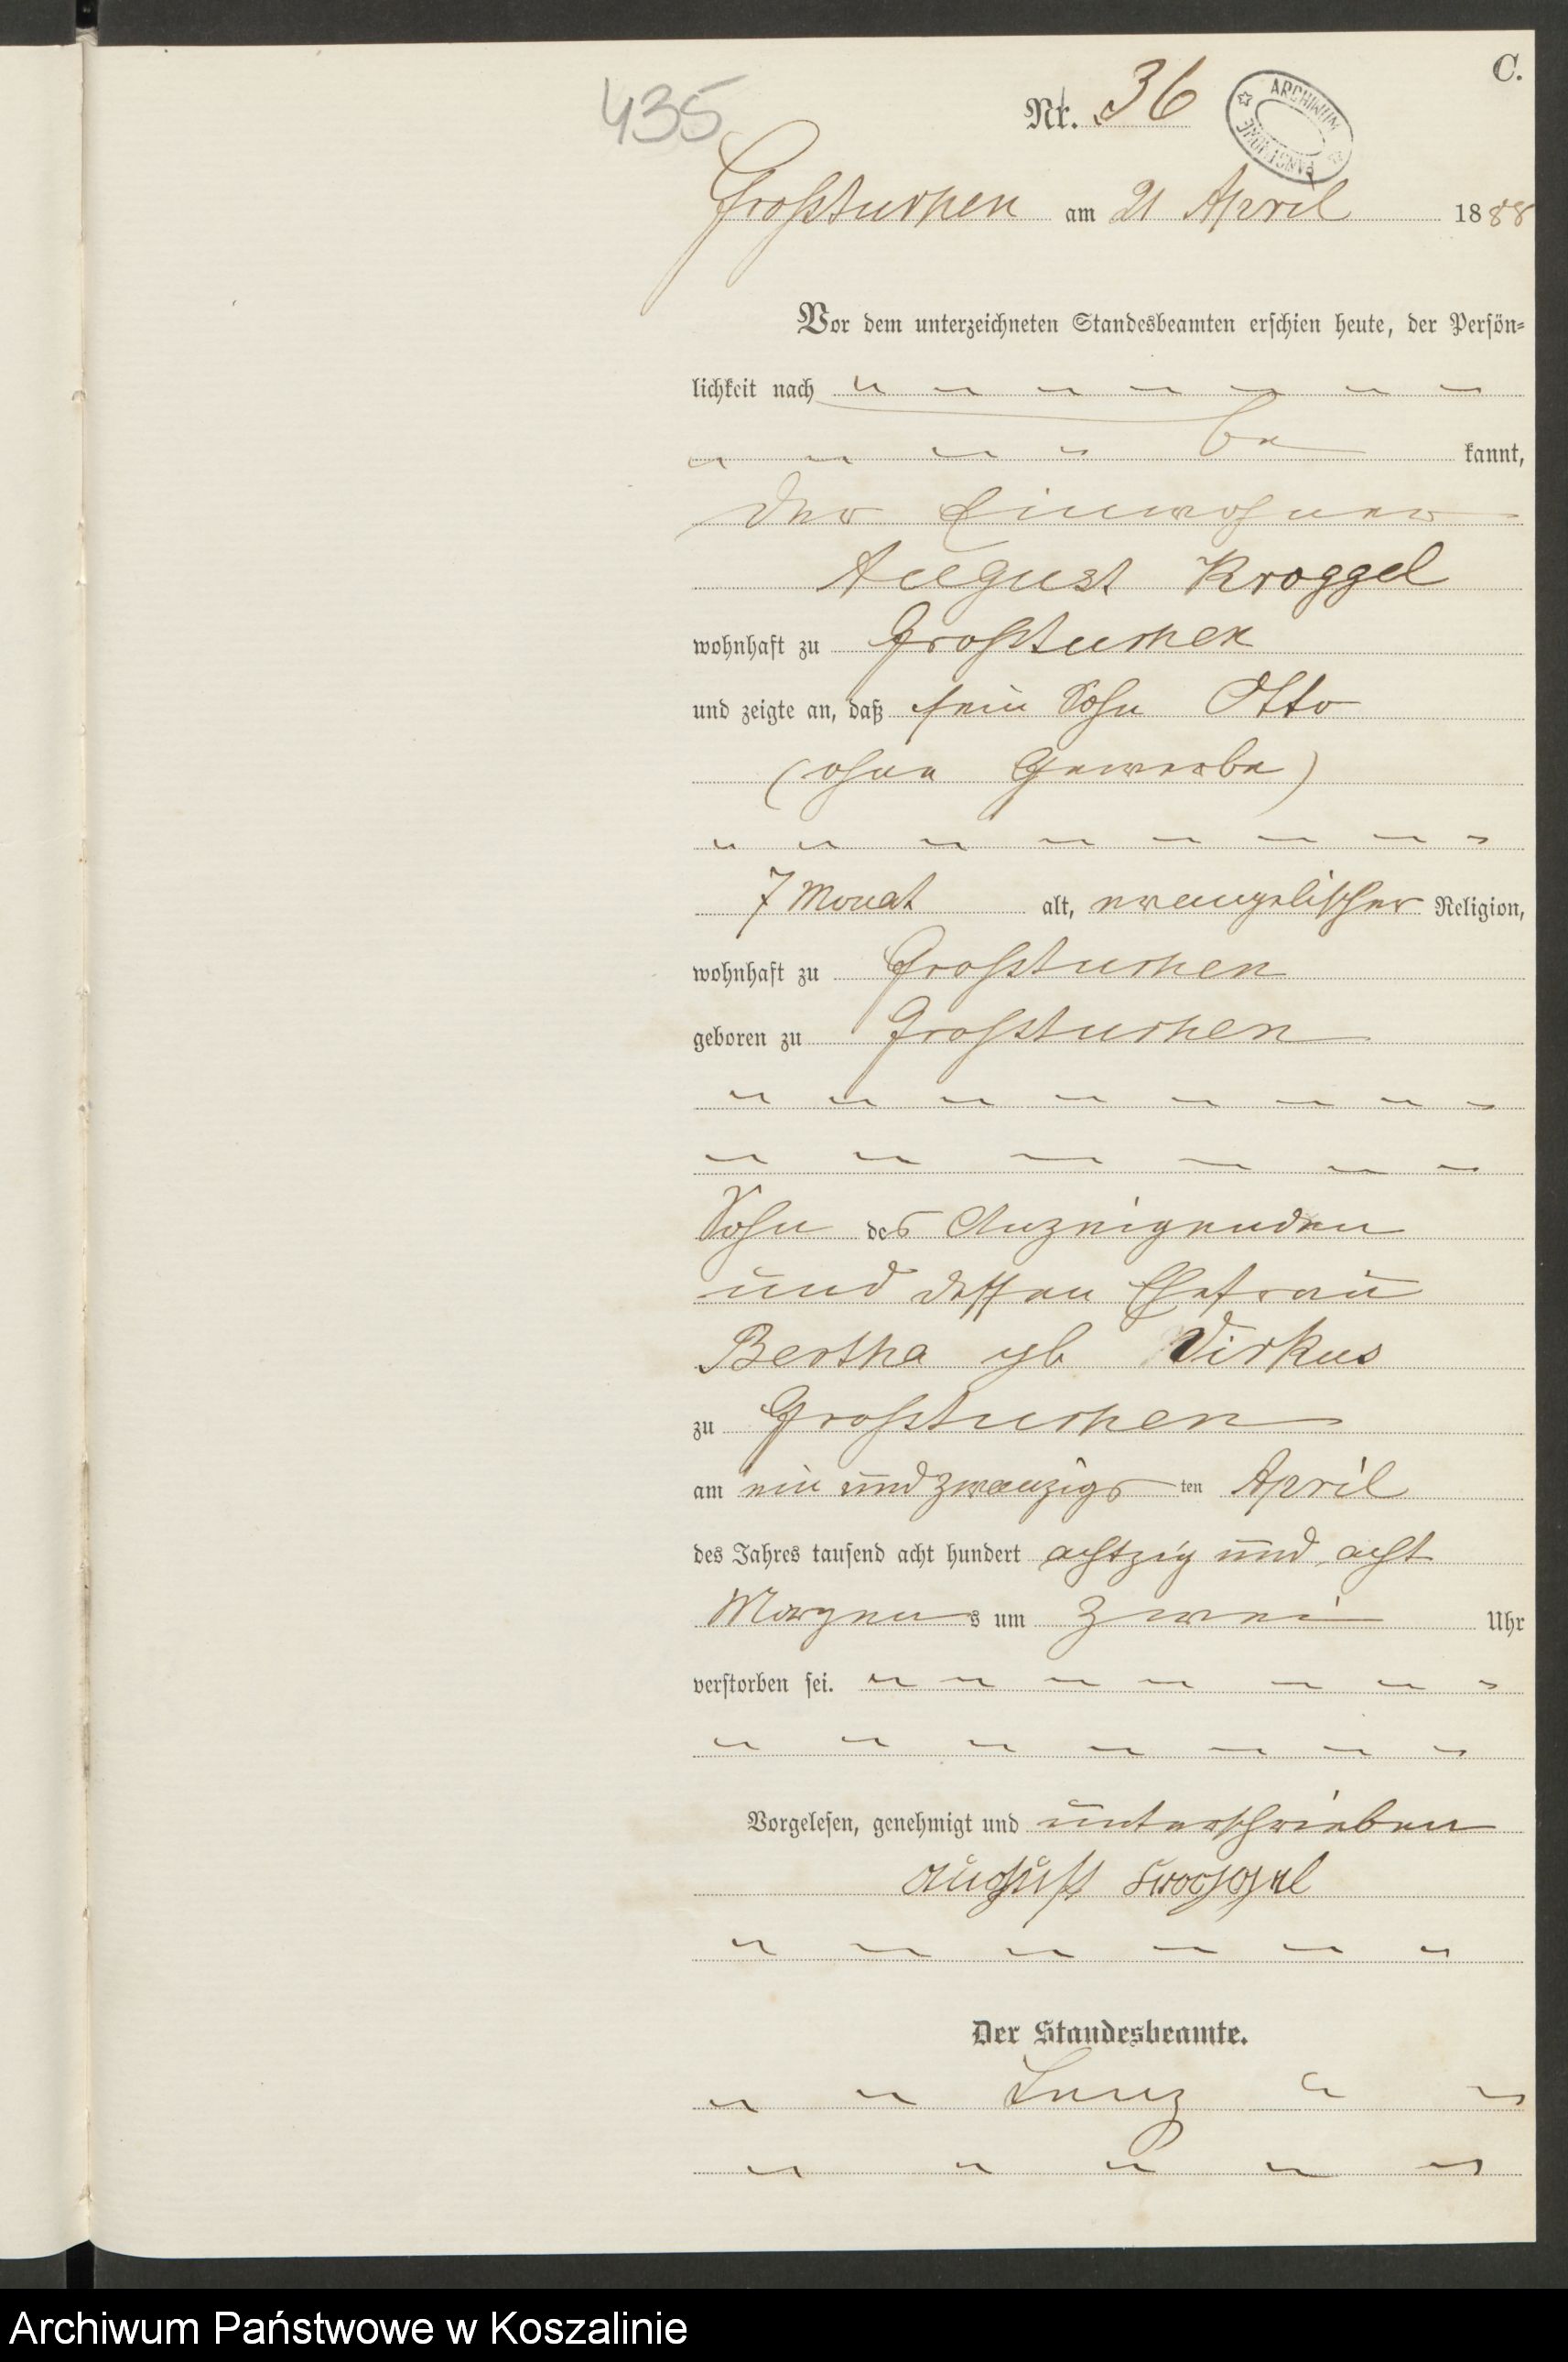 C.
435
Nr. 36
ARCHIWUM PAŃSTWOWE
Großtuchen am 21 April 1888
Vor dem unterzeichneten Standesbeamten erschien heute, der Persön=
lichkeit nach
be kannt,
der Einwohner
August Kroggel
wohnhaft zu Großtuchen
und zeigte an, daß sein Sohn Otto
(ohne Gewerbe)
7 Monat alt, evangelischer Religion,
wohnhaft zu Großtuchen
geboren zu Großtuchen
Sohn des Anzeigenden
und dessen Ehefrau
Bertha gb Virkus
zu Großtuchen
am ein und zwanzigs ten April
des Jahres tausend acht hundert achtzig und acht
Morgens um zwei Uhr
verstorben sei.
Vorgelesen, genehmigt und unterschrieben
August Kroggel
Der Standesbeamte.
Archiwum Państwowe w Koszalinie